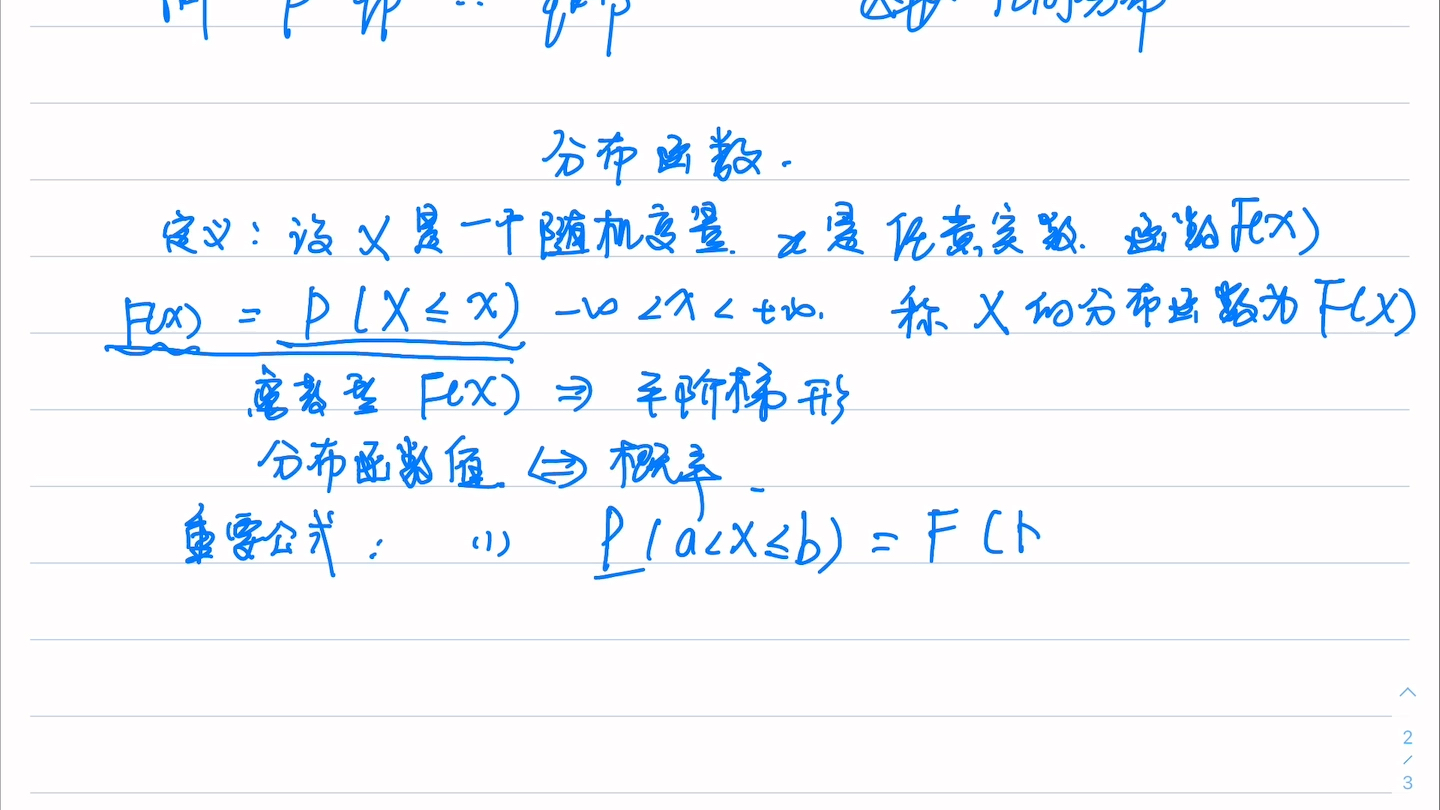 分布函数.
定义: 设 X 是一个随机变量. x 是任意实数. 函数F(x)
F(x) = P(X ≤ x) -∞ < x < +∞. 称 X 的分布函数为 F(X)
离散型 F(X) ⇒ 半阶梯形
分布函数值 ⇔ 概率
重要公式: (1) P(a<X≤b) = F(b
2
/
3